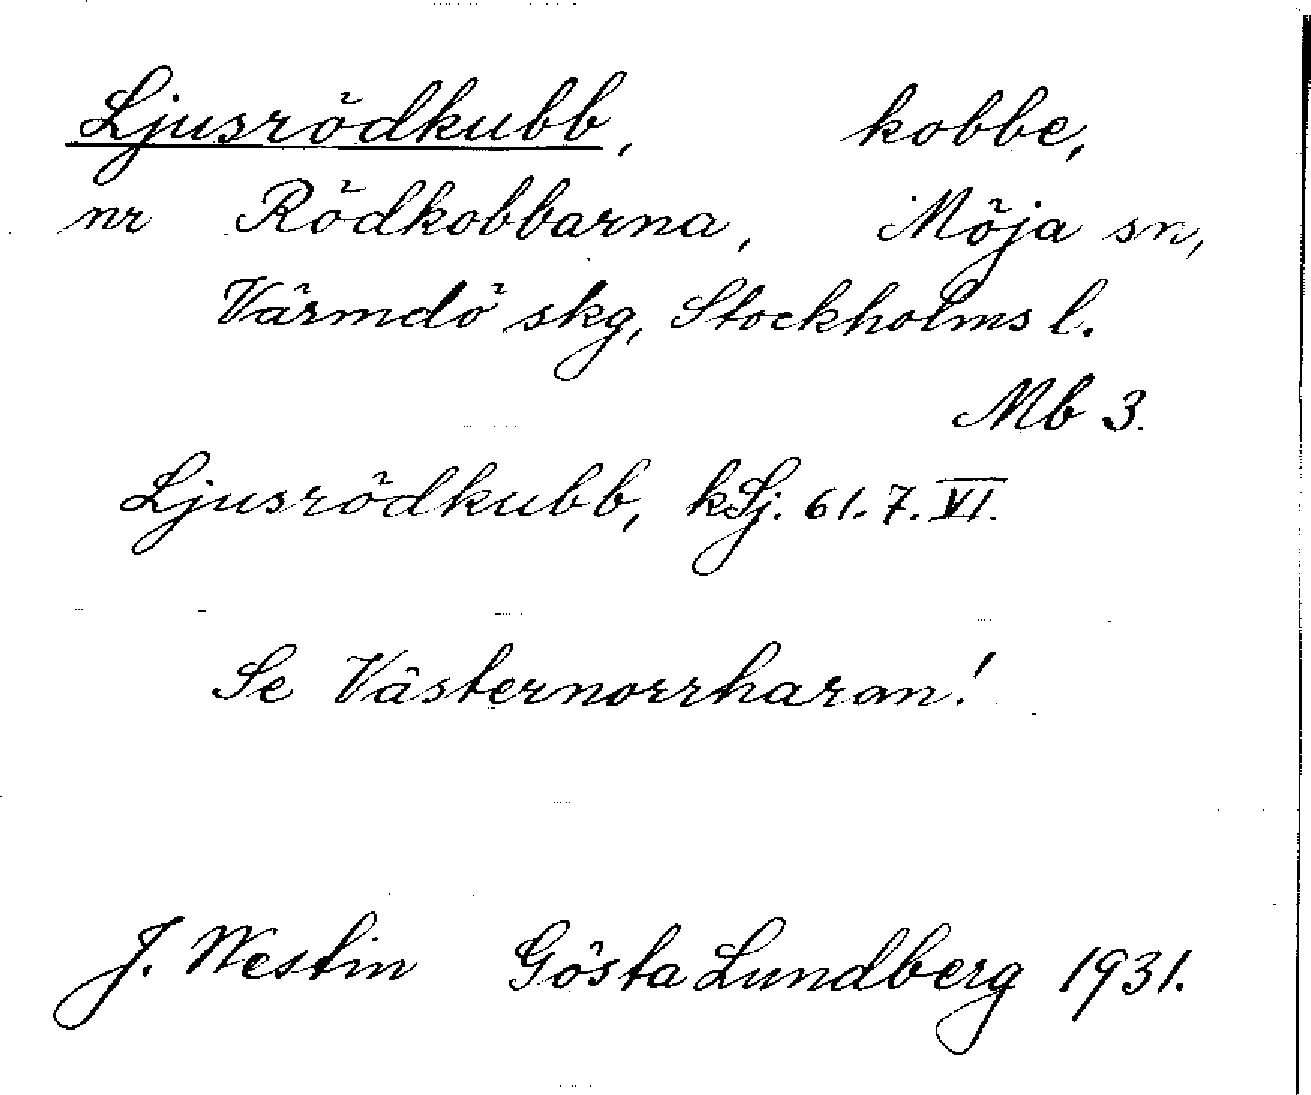 Ljusrödkubb, kobbe,
nr Rödkobbarna, Möja sn,
Värmdö skg, Stockholms l.
Mb 3.
Ljusrödkubb, kSj. 61.7.VI.
Se Västernorrharan!
J. Westin Gösta Lundberg 1931.